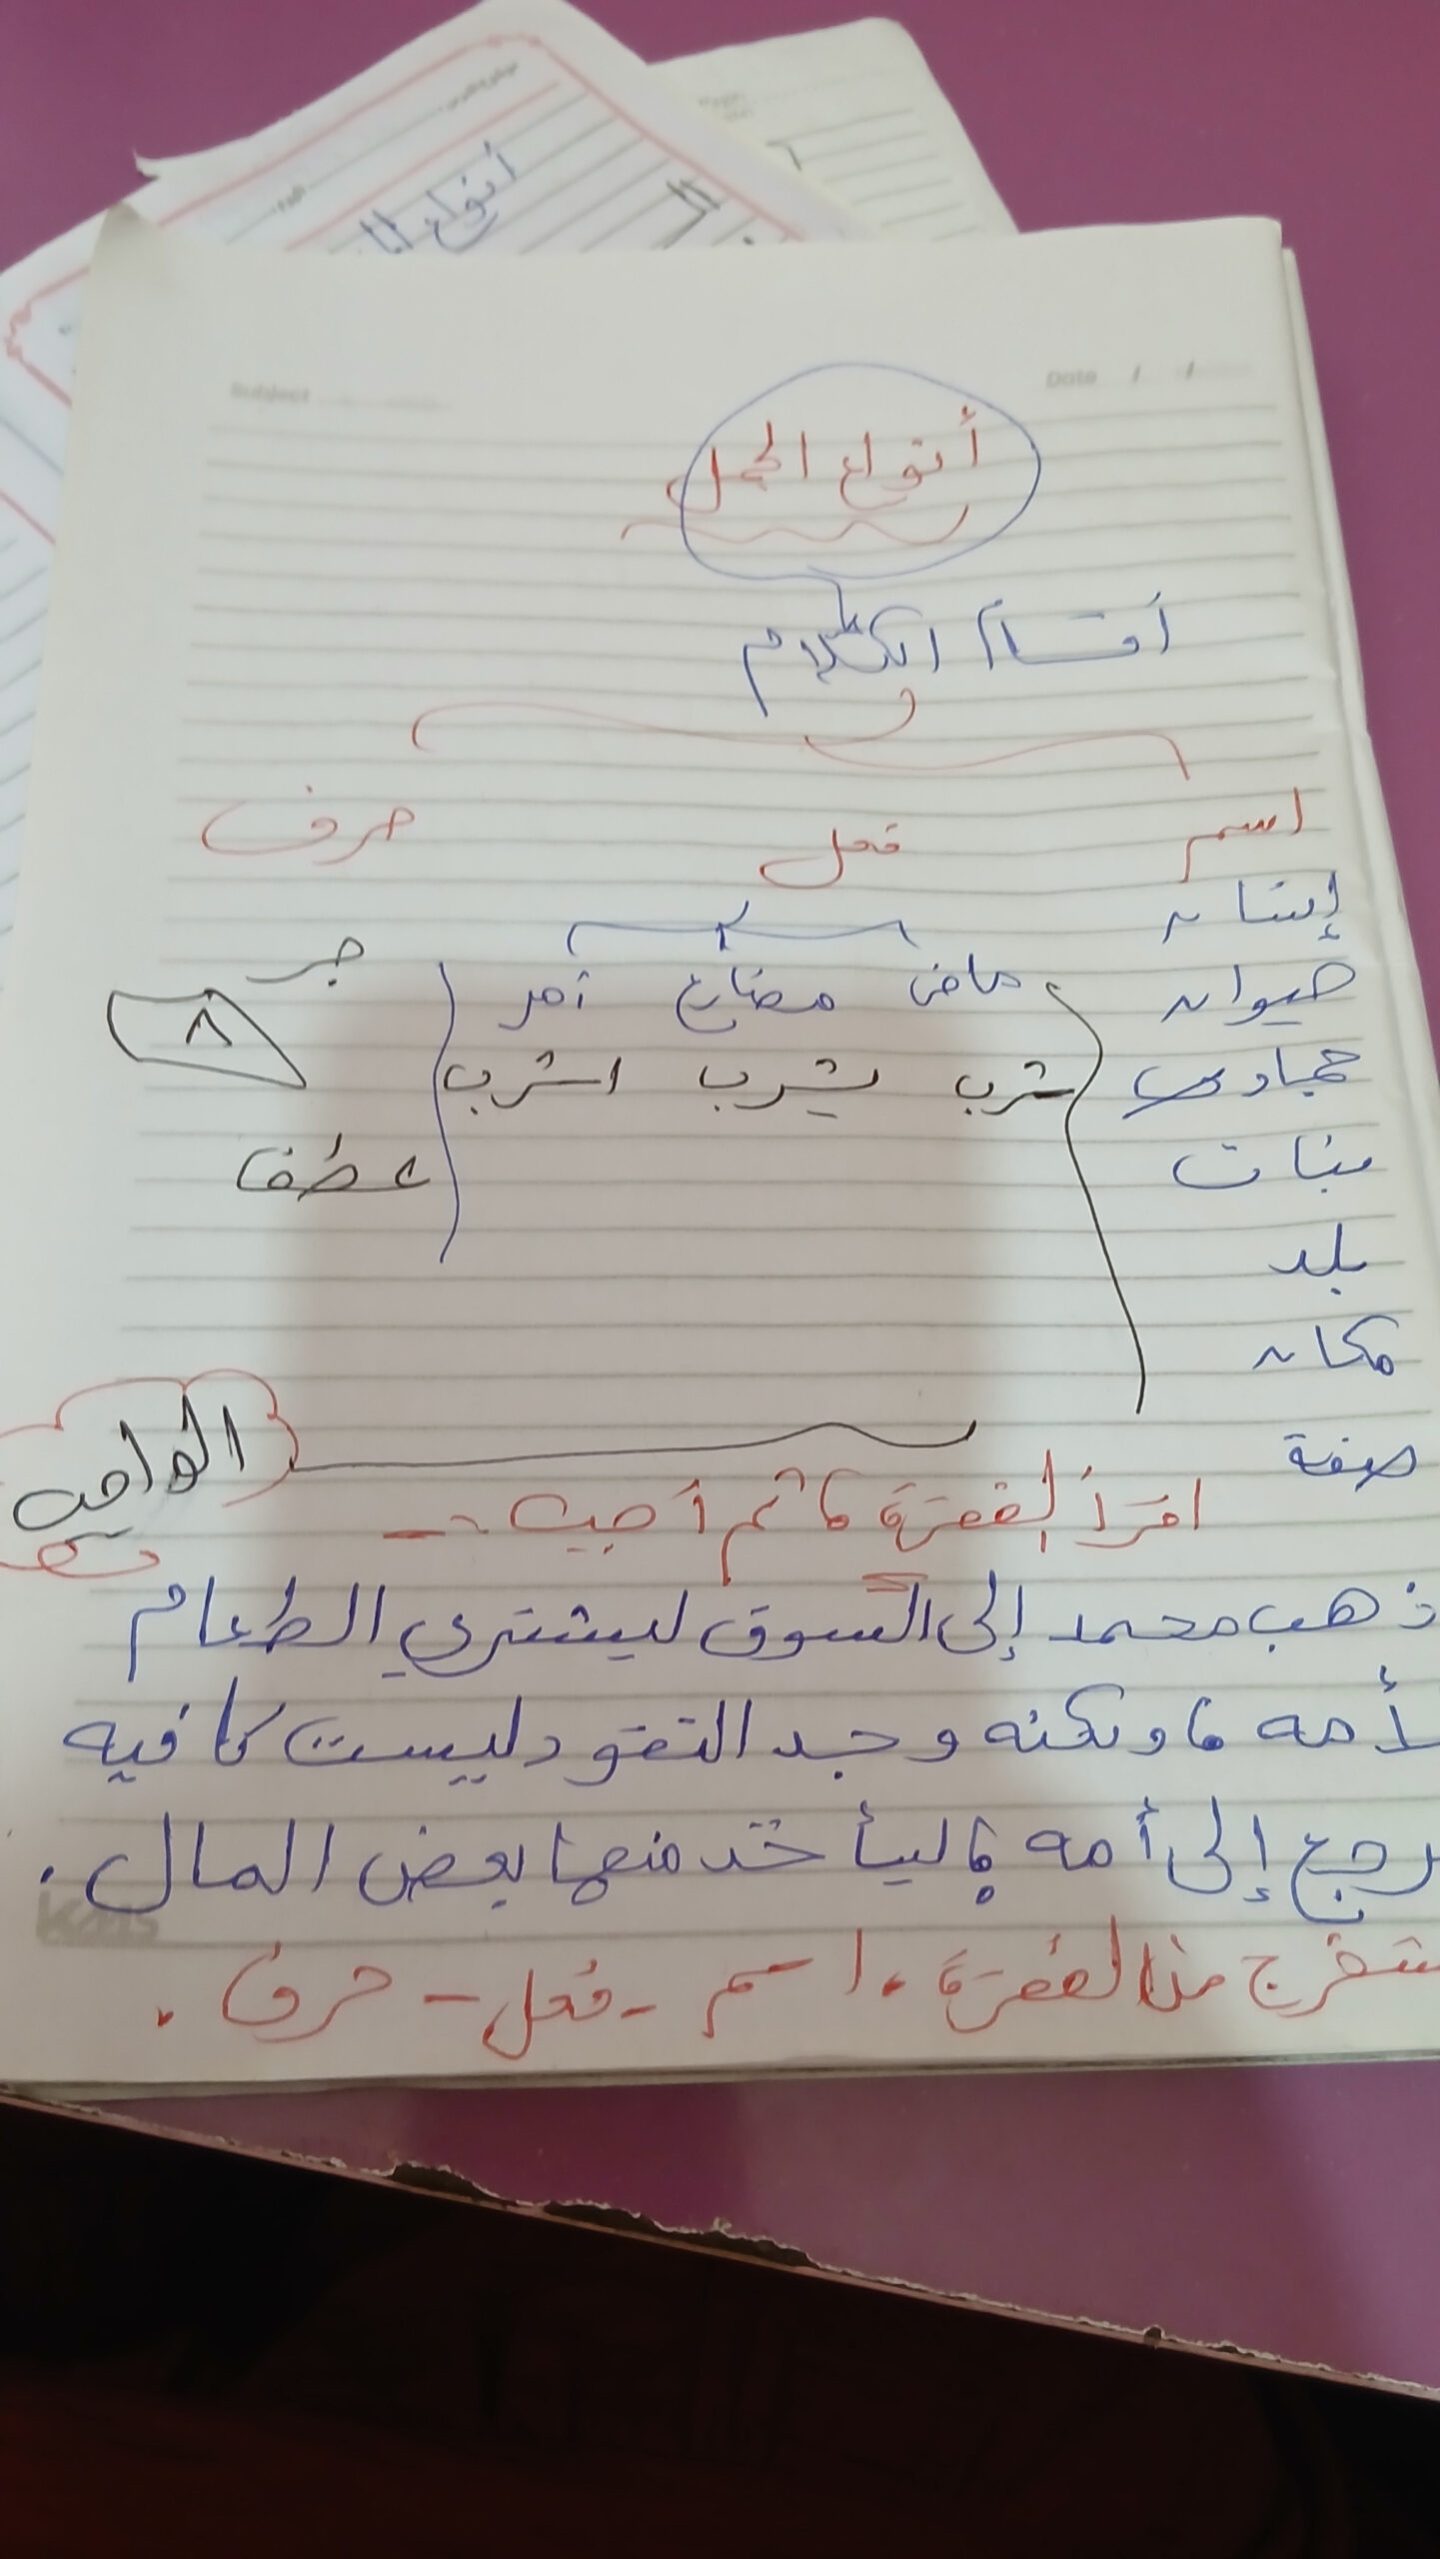 أنواع ال
Subject
Date / /
أنواع الجمل
أقسام الكلام
اسم فعل حرف
إنسان
ماض مضارع أمر
جر
حيوان
شرب يشرب اشرب
٨
جماد
عطف
نبات
بلد
مكان
صفة
الواجب
اقرأ الفقرة ثم أجب
ذهب محمد إلى السوق ليشتري الطعام
لأمه ، ولكنه وجد النقود ليست كافيه
رجع إلى أمه ، ليأخذ منها بعض المال .
ستخرج من الفقرة . اسم - فعل - حرف .